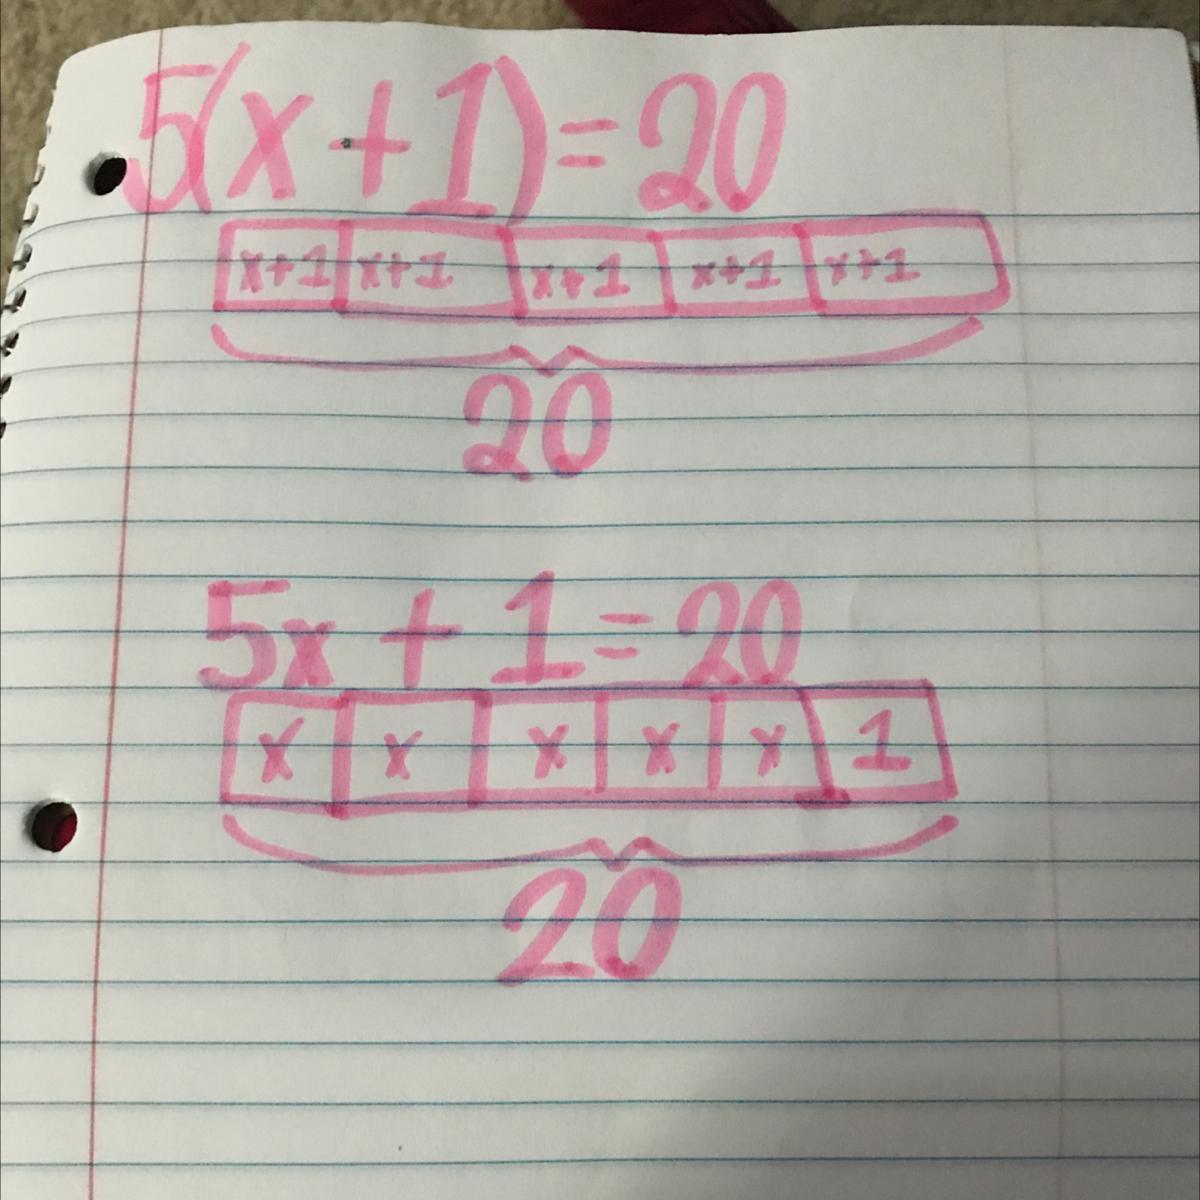 5(x+1)=20
x+1 x+1 x+1 x+1 x+1
20
5x + 1=20
x x x x x 1
20